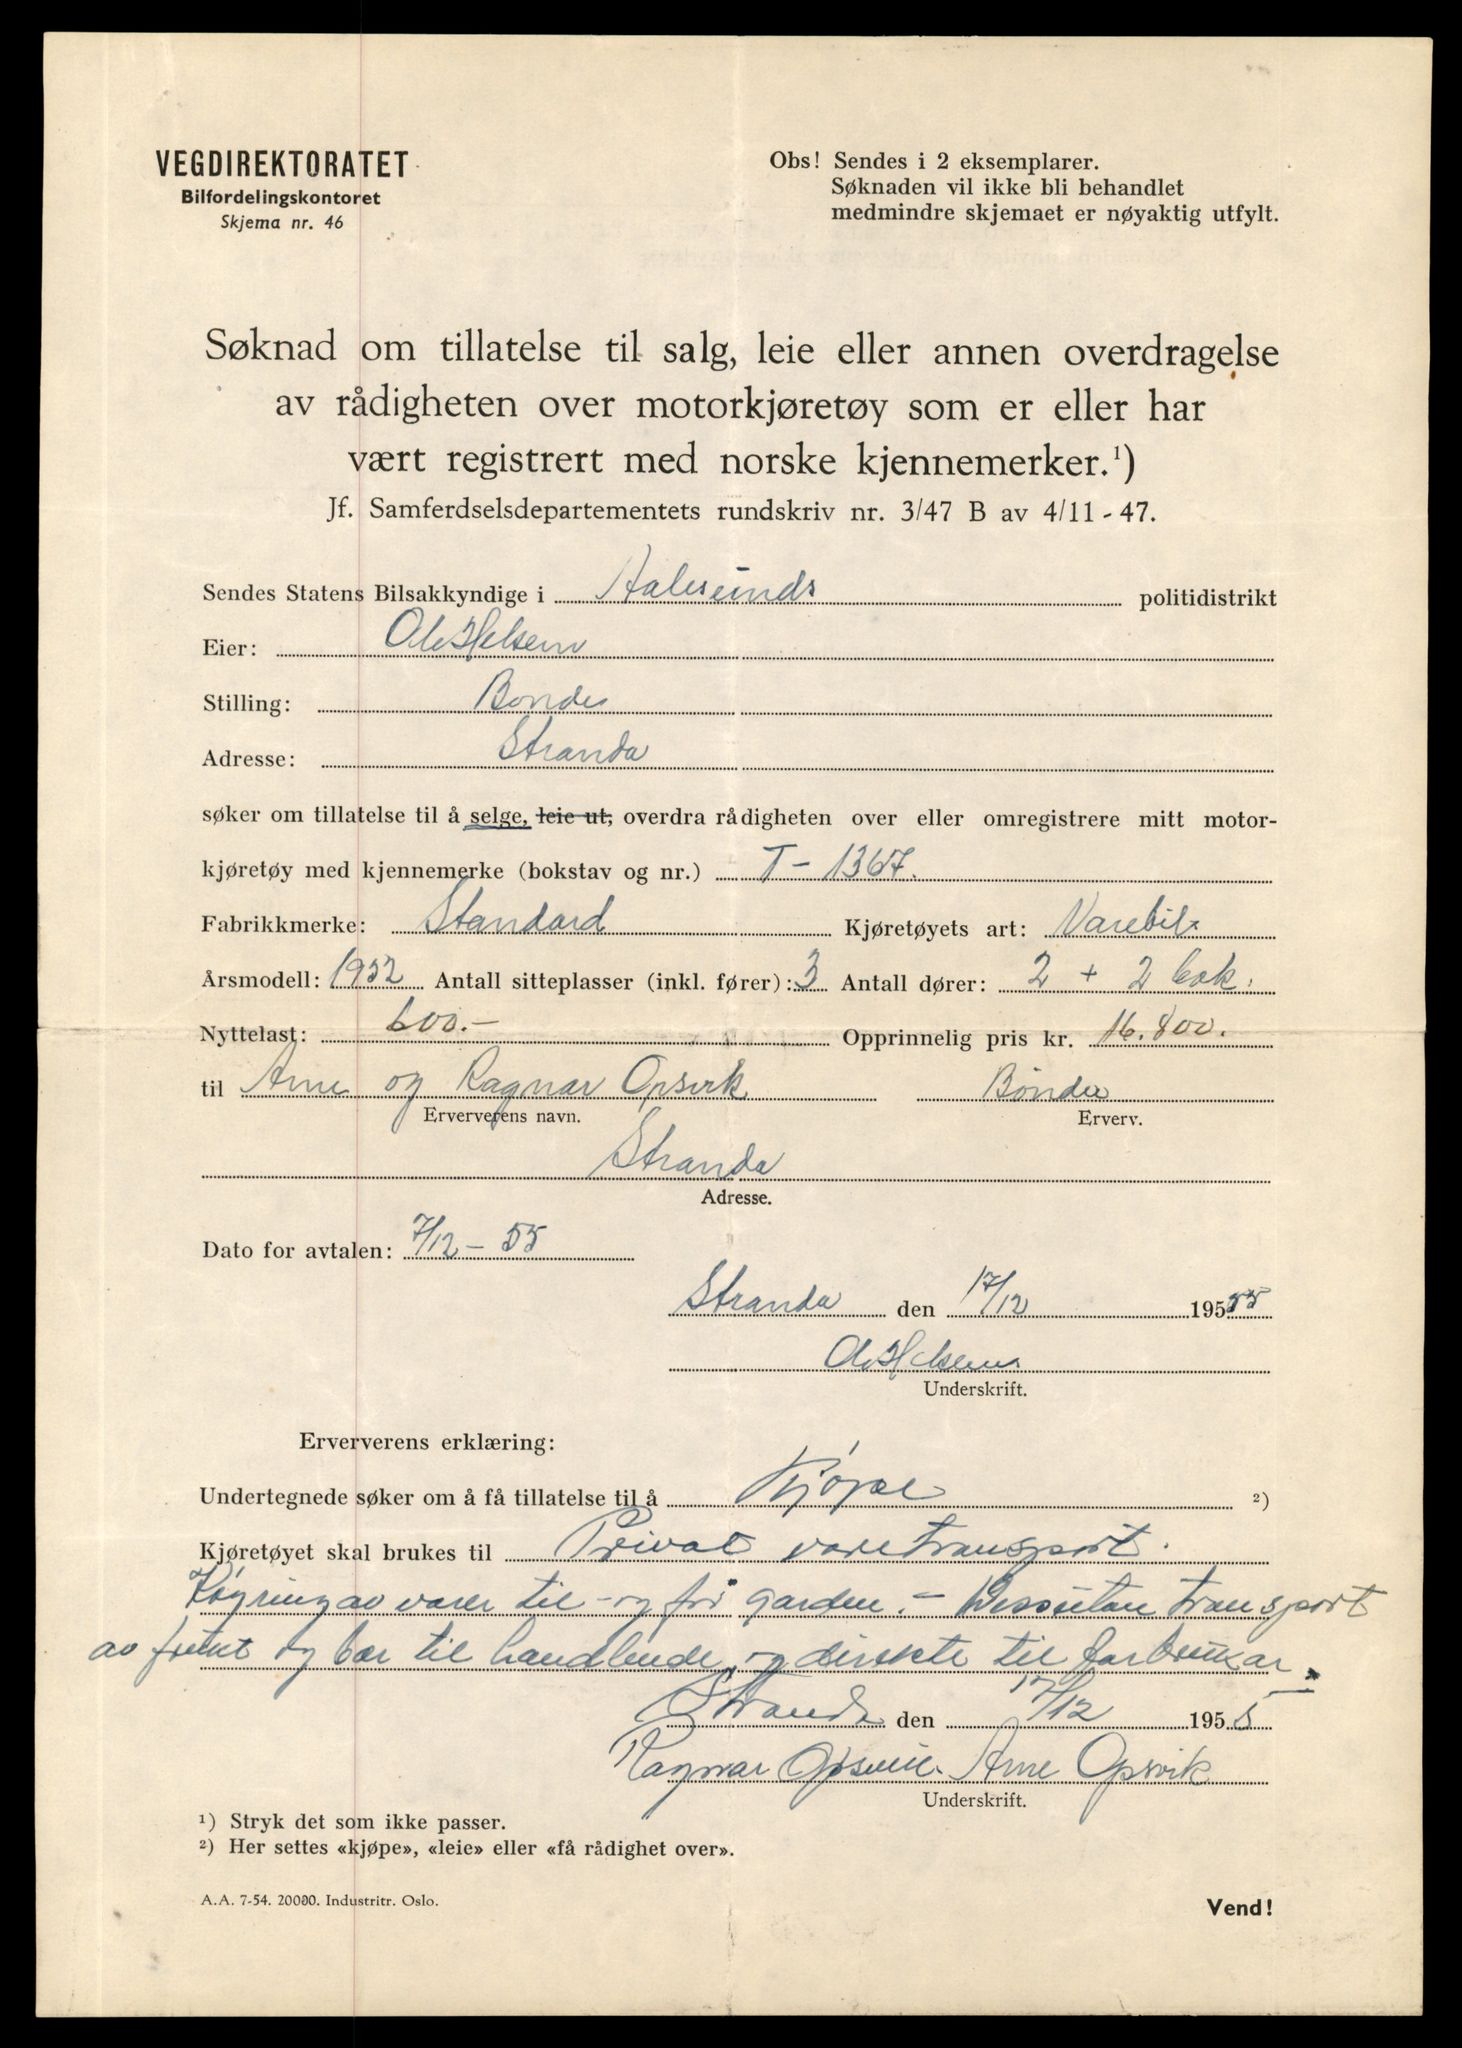 VEGDIREKTORATET
Bilfordelingskontoret
Skjema nr. 46
Obs! Sendes i 2 eksemplarer.
Søknaden vil ikke bli behandlet
medmindre skjemaet er nøyaktig utfylt.
Søknad om tillatelse til salg, leie eller annen overdragelse
av rådigheten over motorkjøretøy som er eller har
vært registrert med norske kjennemerker.¹)
Jf. Samferdselsdepartementets rundskriv nr. 3/47 B av 4/11 - 47.
Sendes Statens Bilsakkyndige i Aalesunds politidistrikt
Eier: Ole
Stilling: Bonde
Adresse: Stranda
søker om tillatelse til å selge, leie ut, overdra rådigheten over eller omregistrere mitt motor-
kjøretøy med kjennemerke (bokstav og nr.) T - 1367.
Fabrikkmerke: Standard Kjøretøyets art: Varebil
Årsmodell: 1952 Antall sitteplasser (inkl. fører): 3 Antall dører: 2 + 2 bak.
Nyttelast: 600.- Opprinnelig pris kr. 16.800.
til Arne og Ragnar Opsvik Bønder
Erververens navn. Erverv.
Stranda
Adresse.
Dato for avtalen: 7/12 - 55
Stranda den 17/12 19555
Underskrift.
Erververens erklæring:
Undertegnede søker om å få tillatelse til å Kjøpe ²)
Kjøretøyet skal brukes til Privat varetransport.
Køyring av varer til - og frå garden. - Dessutan transport
av frukt og bær til handlende og direkte til forbrukar.
Stranda den 17/12 1955
Ragnar Opsvik. Arne Opsvik
Underskrift.
¹) Stryk det som ikke passer.
²) Her settes «kjøpe», «leie» eller «få rådighet over».
A.A. 7-54. 20000. Industritr. Oslo.
Vend!